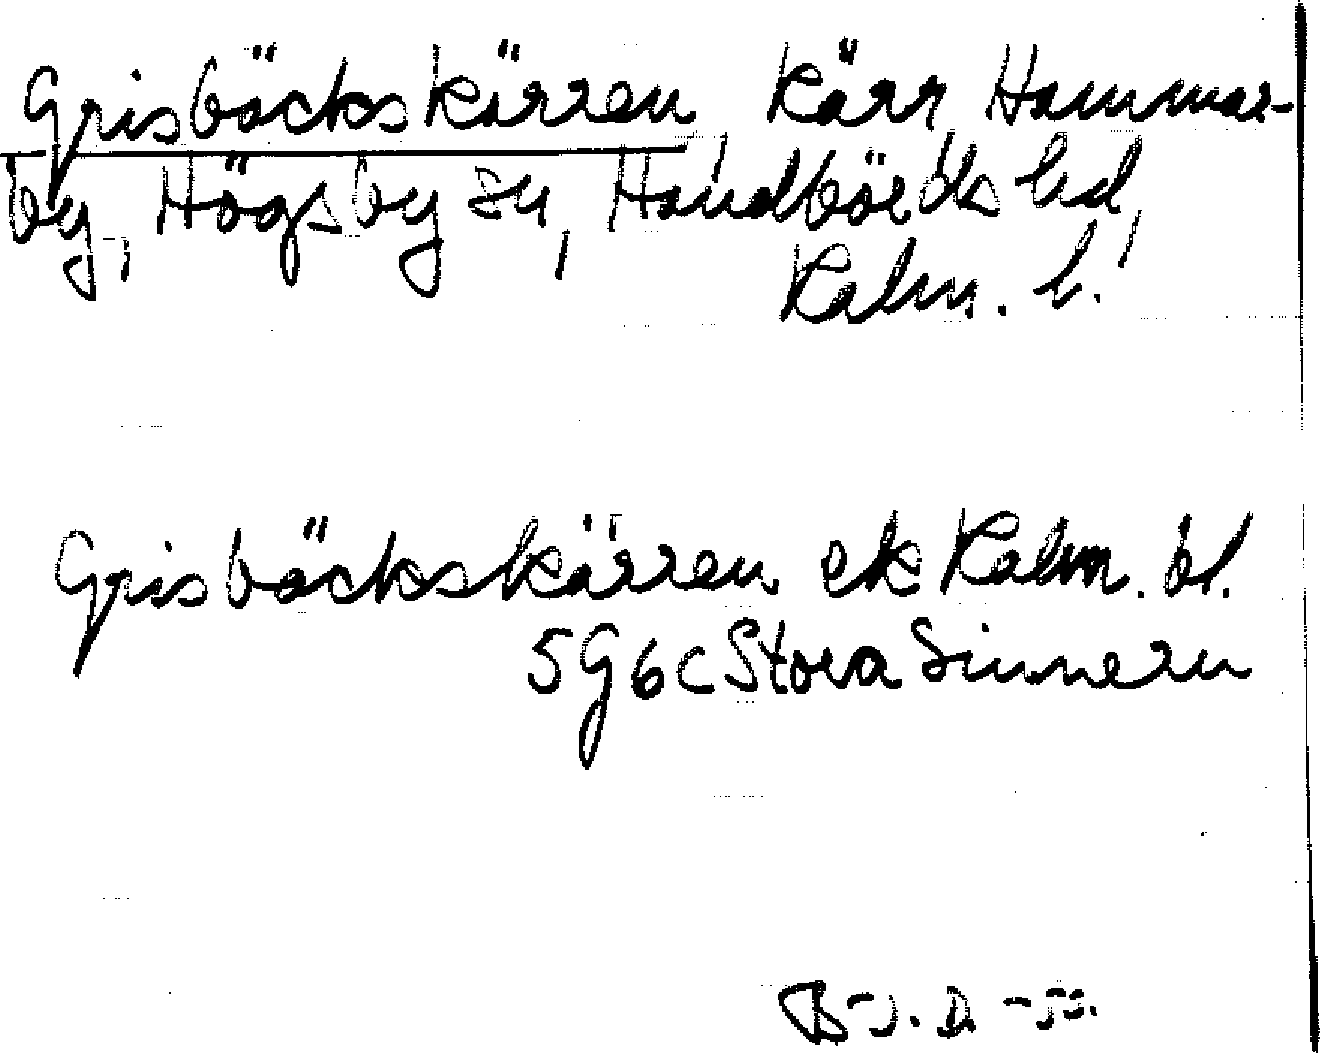 Grisbäckskärren, kärr, Hammar-
by, Högsby sn, Handbörds hd,
Kalm. l.
Grisbäckskärren ek Kalm. bl.
5G6c Stora Sinnern
B-J. D.